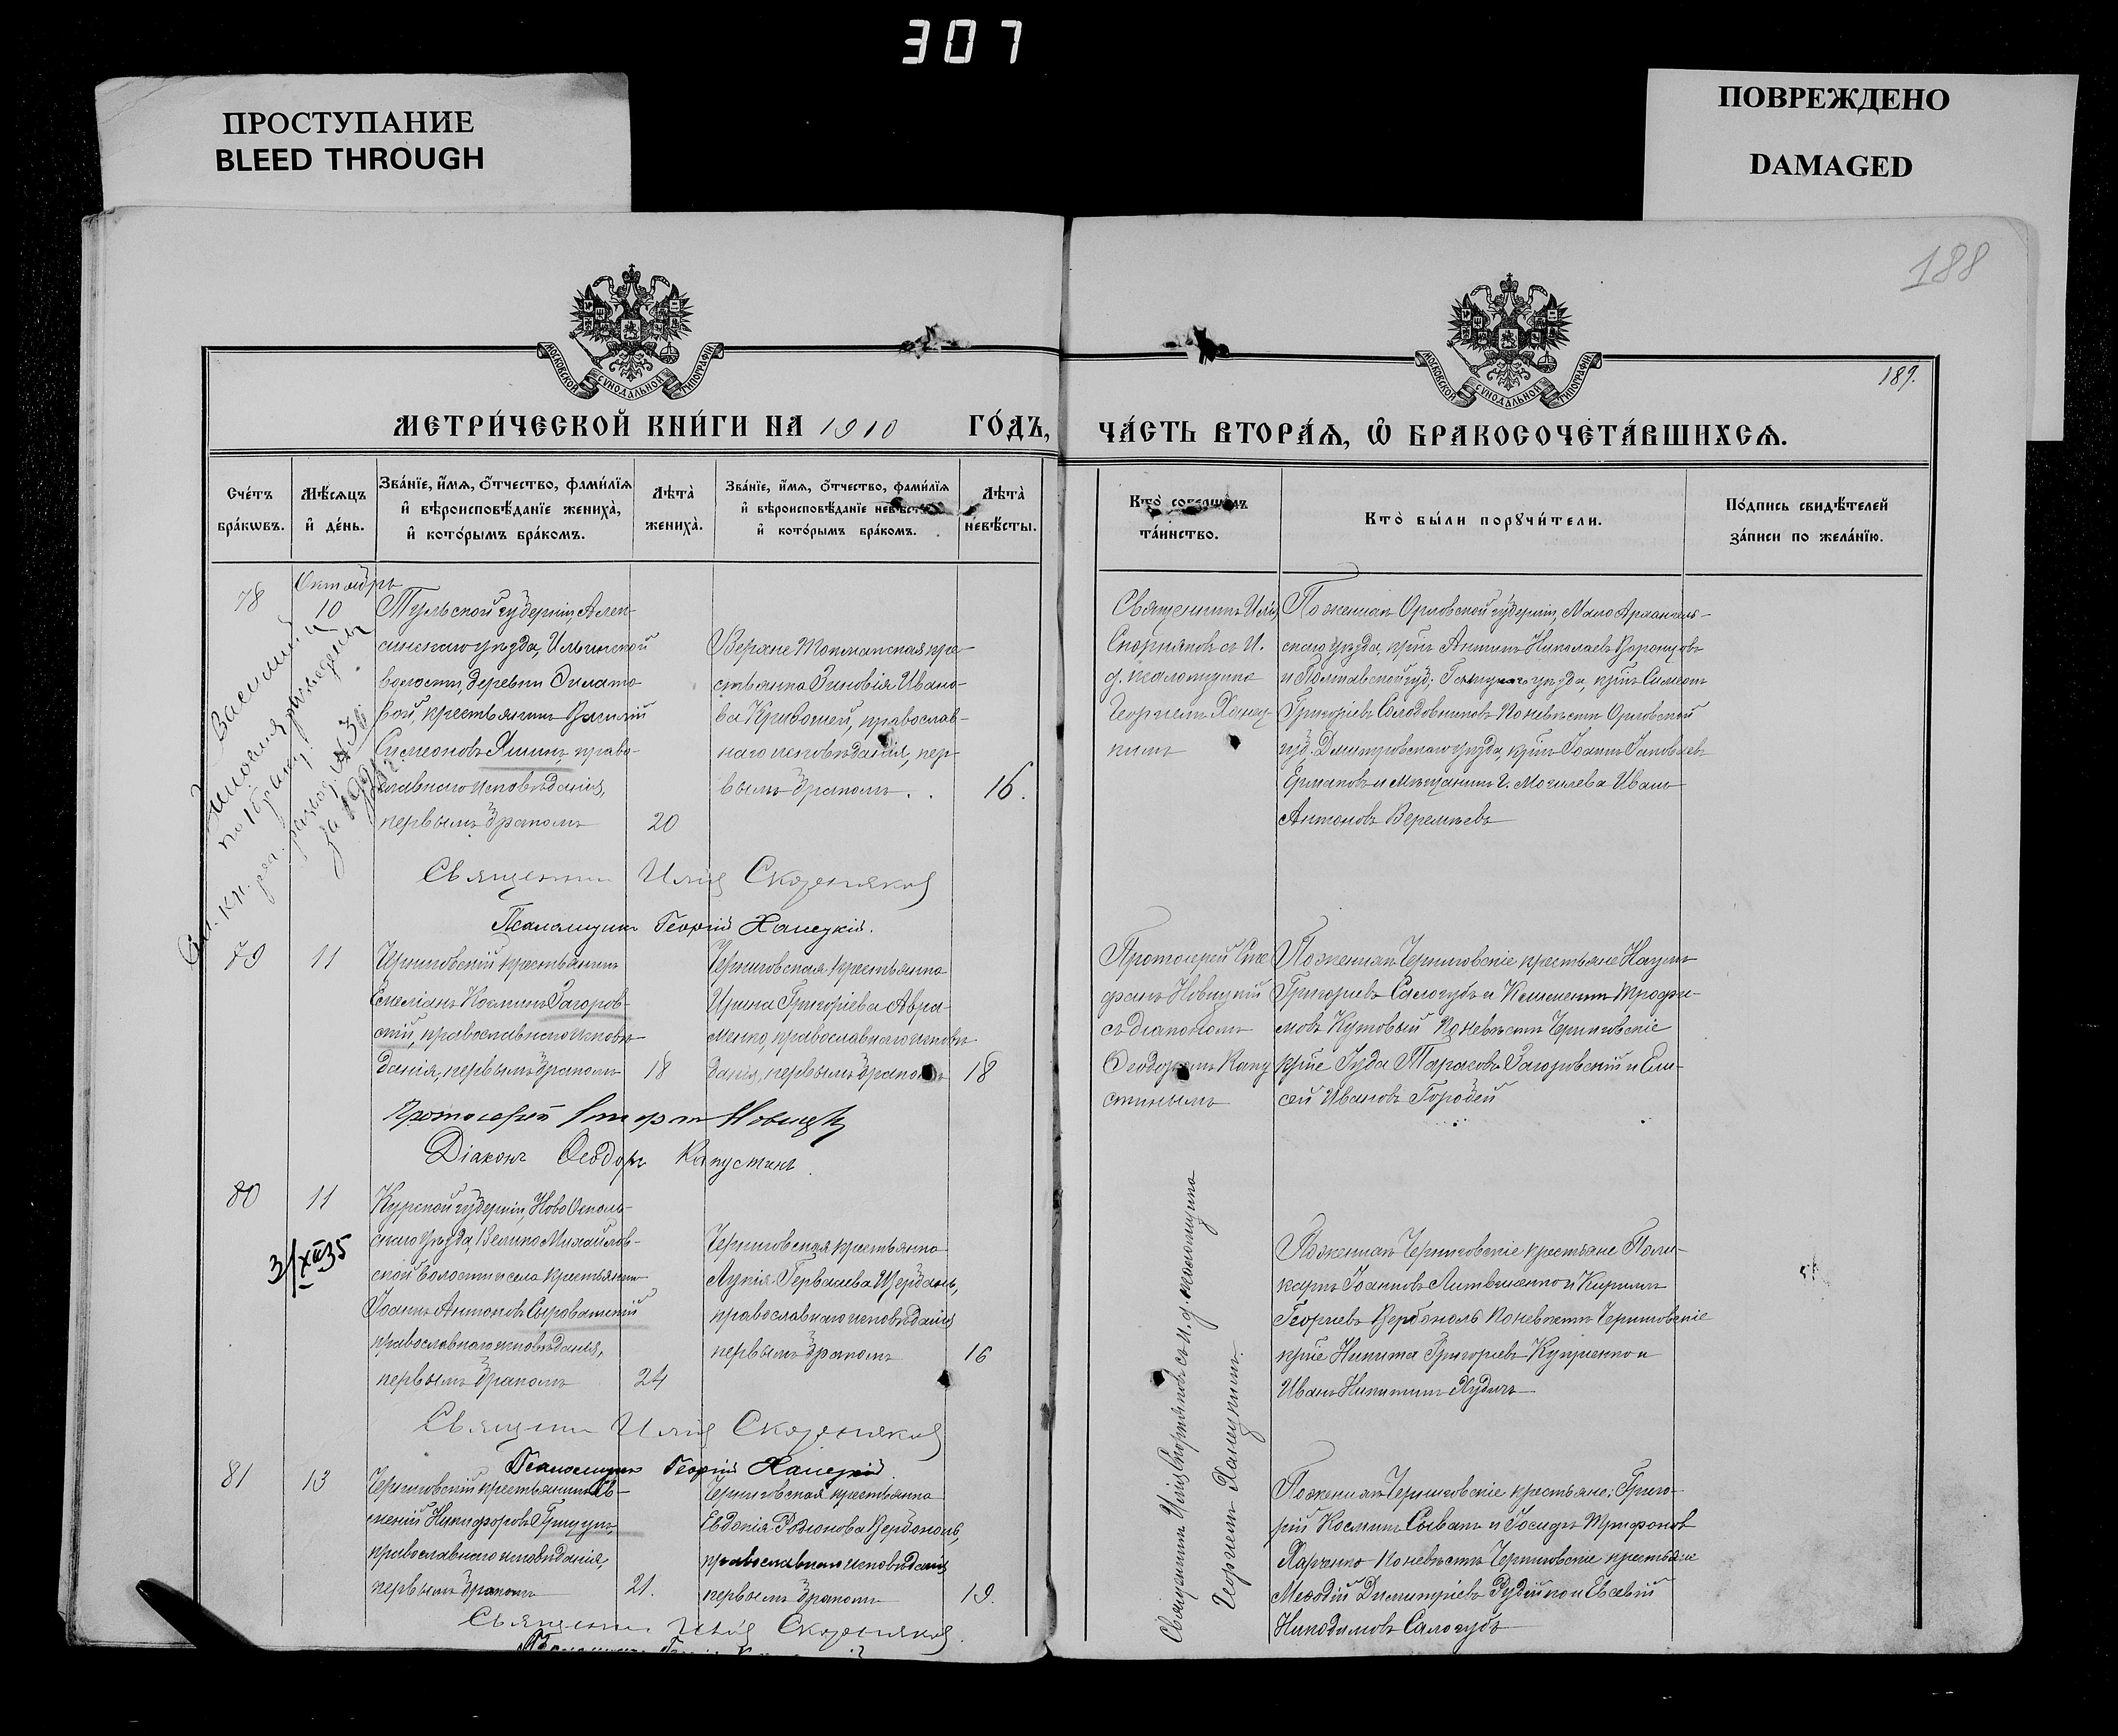 307
ПРОСТУПАНИЕ
BLEED THROUGH
ПОВРЕЖДЕНО
DAMAGED
188
189.
МОСКОВСКОЙ СѴНОДАЛЬНОЙ ТИПОГРАФІИ
МОСКОВСКОЙ СѴНОДАЛЬНОЙ ТИПОГРАФІИ
МЕТРИ́ЧЕСКОЙ КНИ́ГИ НА 1910 ГО́ДЪ,
ЧА́СТЬ ВТОРА́Ѧ, Ѽ БРАКОСОЧЕТА́ВШИХСѦ.
Сче́тъ
бра́кѡвъ.
Мѣ́сяцъ
и҆ де́нь.
Зва́нїе, и҆́мѧ, ѻ҆́тчество, фами́лїѧ
и҆ вѣроисповѣ́данїе жениха̀,
и҆ кото́рымъ бра́комъ.
Лѣта̀
жениха̀.
Зва́нїе, и҆́мѧ, ѻ҆́тчество, фами́лїѧ
и҆ вѣроисповѣ́данїе невѣ́сты
и҆ кото́рымъ бра́комъ.
Лѣта̀
невѣ́сты.
Кто̀ соверша́лъ
та́инство.
Кто̀ бы́ли порꙋчи́тели.
По́дпись свидѣ́телей
за́писи по жела́нїю.
78
Октябрь
10
Тульской губерніи, Алек-
синскаго уѣзда, Ильинской
волости, деревни
вой, крестьянинъ Василій
Симеоновъ Яшинъ, право-
славнаго исповѣданія,
первымъ бракомъ
20
Верхне Токмакская кре-
стьянка Зиновія Ивано-
ва Кривошей, православ-
наго исповѣданія, пер-
вымъ бракомъ.
16.
Священникъ Илія
Скорняковъ с И.
д. псаломщика
Георгіемъ Ханец-
кимъ
По женихѣ Орловской губерніи, Мало Архангель-
скаго уѣзда, кр̃нъ Антонъ Николаевъ
и Полтавской губ; уѣзда, кр̃нъ Симеонъ
Григоріевъ Солодовниковъ По невѣстѣ Орловской
губ. Дмитровскаго уѣзда, кр̃нъ Іоаннъ Іаковлевъ
Ермаковъ и мѣщанинъ г. Могилева Иванъ
Антоновъ Веремѣевъ
Священникъ Илія Скорняковъ
Псаломщикъ Георгій Ханецкій.
79
11
Черниговскій крестьянинъ
Емеліанъ Косминъ Загоров-
скій, православнаго исповѣ-
данія, первымъ бракомъ
18
Черниговская крестьянка
Ирина Григоріева Авра-
менко, православнаго исповѣ
данія, первымъ бракомъ
18
Протоіерей Сте
фанъ Новицкій
съ діакономъ
Ѳеодоромъ Капу
стинымъ
По женихѣ Черниговскіе крестьяне Наумъ
Григорьевъ Салогубъ и Климентъ Трофи-
мовъ Кутовый По невѣстѣ Черниговскіе
кр̃не Іуда Тарасовъ Загоровскій и Ели-
сей Ивановъ Городей
Протоіерей Стефанъ Новицкій
Діаконъ Ѳеодоръ Капустинъ.
80
11
31/XII 35
Курской губерніи, Ново Осколь-
скаго уѣзда, Велико Михайлов-
ской волости и села крестьянинъ
Іоаннъ Антоновъ Сыроватскій
православнаго исповѣданія,
первымъ бракомъ
24
Черниговская крестьянка
Лукія Гервасіева Щербань,
православнаго исповѣданія
первымъ бракомъ
16
По женихѣ Черниговскіе крестьяне Поли-
карпъ Іоанновъ Литвиненко и Кириллъ
Георгіевъ Вербоноль По невѣстѣ Черниговскіе
кр̃не Никита Григоріевъ Купріенко и
Иванъ Никитинъ Худичъ
Священникъ Илія Скорняковъ
Псаломщикъ Георгій Ханецкій.
Священникъ Илія Скорняковъ съ И. д. псаломщика
Георгіемъ Ханецкимъ.
81
13
Черниговскій крестьянинъ Ев-
меній Никифоровъ Грицунъ,
православнаго исповѣданія,
первымъ бракомъ
21.
Черниговская крестьянка
Евдокія Родіонова Вербоноль,
православнаго исповѣданія
первымъ бракомъ
19.
По женихѣ Черниговскіе крестьяне: Григо-
рій Косминъ Сыватъ и Іосифъ Трифоновъ
Харченко По невѣстѣ Черниговскіе крестьяне
Меѳодій Димитріевъ Рудійко и Евсевій
Никодимовъ Салогубъ
Священникъ Илія Скорняковъ.